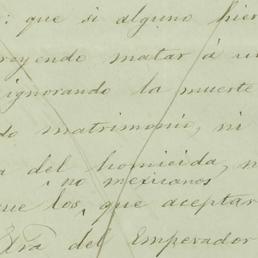 : que si alguno hier
creyendo matar á u
ignorando la muerte
do matrimonio, ni
a del homicida, n
no mexicanos
que los, que aceptar
Era del Emperador